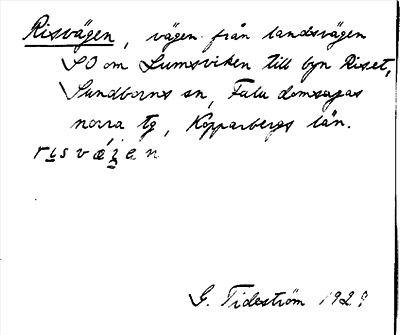 Risvägen, vägen från landsvägen
SO om Lumsviken till byn Riset,
Sundborns sn, Falu domsagas
norra tg, Kopparbergs län.
G. Tideström 192